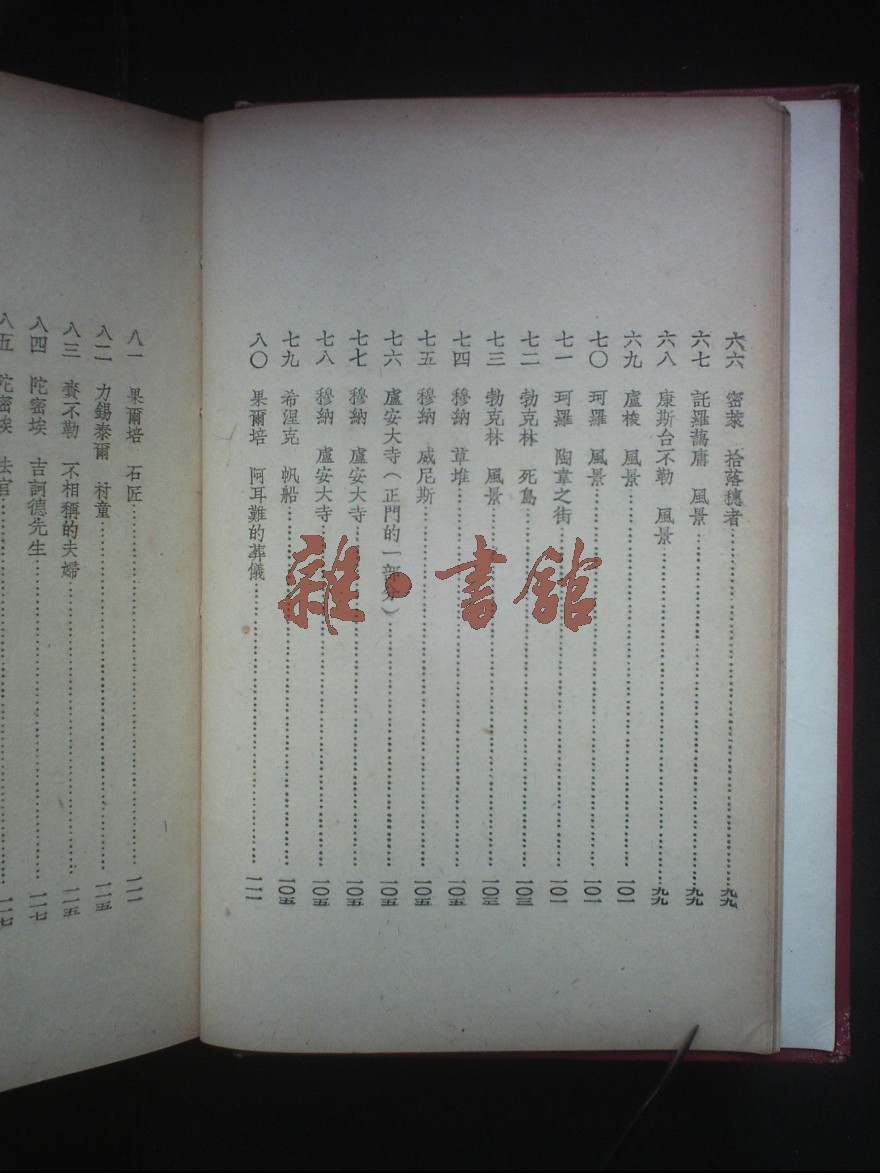 六六 密萊 拾落穗者……九九
六七 託羅藹庸 風景……九九
六八 康斯台不勒 風景……九九
六九 盧梭 風景……一〇一
七〇 珂羅 風景……一〇一
七一 珂羅 陶韋之街……一〇一
七二 勃克林 死島……一〇三
七三 勃克林 風景……一〇三
七四 穆納 草堆……一〇五
七五 穆納 威尼斯……一〇五
七六 盧安大寺(正門的一部分)……一〇五
七七 穆納 盧安大寺……一〇五
七八 穆納 盧安大寺……一〇五
七九 希涅克 帆船……一〇五
八〇 果爾培 阿耳難的葬儀……一一一
八一 果爾培 石匠……一一一
八二 力錫泰爾 村童……一一五
八三 賚不勒 不相稱的夫婦……一一五
八四 陀密埃 吉訶德先生……一一七
八五 陀密埃 法官……一一七
雜·書館